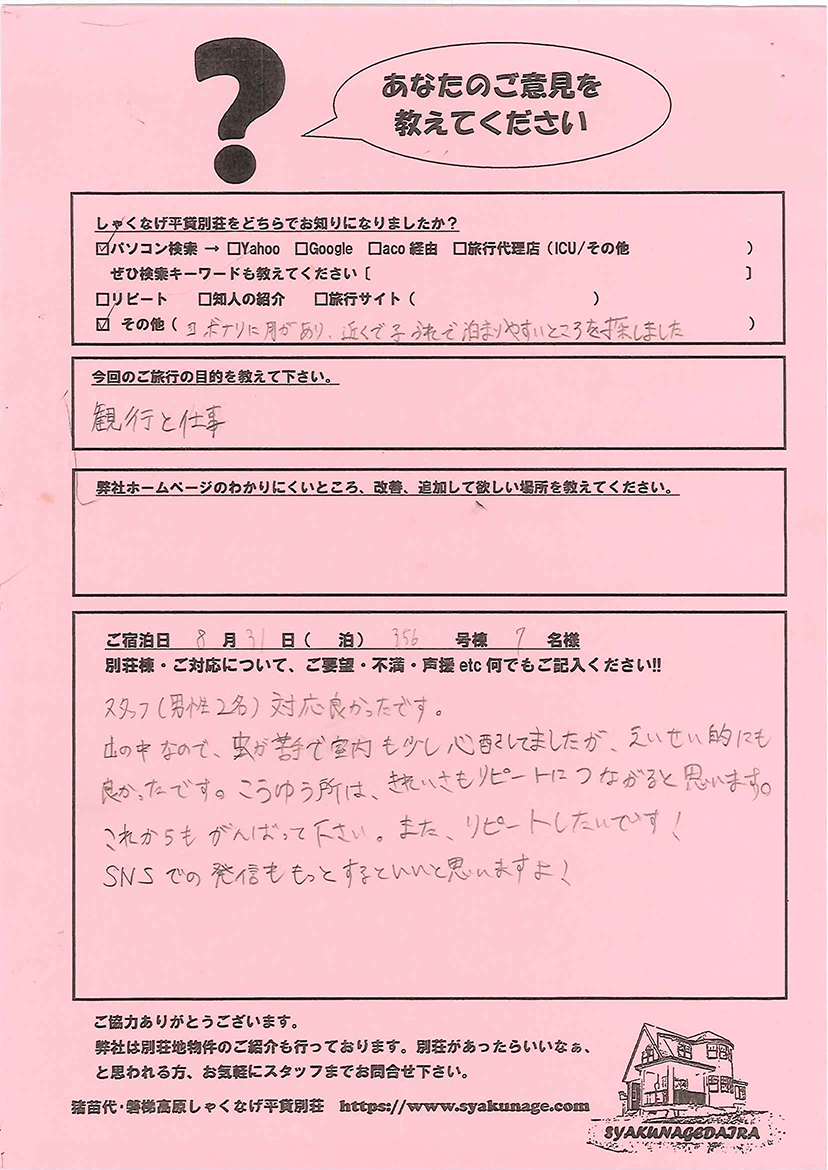 ?
あなたのご意見を
教えてください
しゃくなげ平貸別荘をどちらでお知りになりましたか?
☑パソコン検索 → □Yahoo □Google □aco経由 □旅行代理店(ICU/その他 )
ぜひ検索キーワードも教えてください [ ]
□リピート □知人の紹介 □旅行サイト( )
☑ その他( ヨガナリに用があり、近くで子づれで泊まりやすいところを探しました )
今回のご旅行の目的を教えて下さい。
観行と仕事
弊社ホームページのわかりにくいところ、改善、追加して欲しい場所を教えてください。
ご宿泊日 8 月 31 日( 泊) 356 号棟 7 名様
別荘棟・ご対応について、ご要望・不満・声援etc何でもご記入ください!!
スタッフ(男性2名)対応良かったです。
山の中なので、虫が苦手で室内も少し心配してましたが、えいせい的にも
良かったです。こうゆう所は、きれいさもリピートにつながると思います。
これからもがんばって下さい。また、リピートしたいです!
SNSでの発信ももっとするといいと思いますよ!
ご協力ありがとうございます。
弊社は別荘地物件のご紹介も行っております。別荘があったらいいなぁ、
と思われる方、お気軽にスタッフまでお問合せ下さい。
猪苗代・磐梯高原しゃくなげ平貸別荘 https://www.syakunage.com
SYAKUNAGEDAIRA